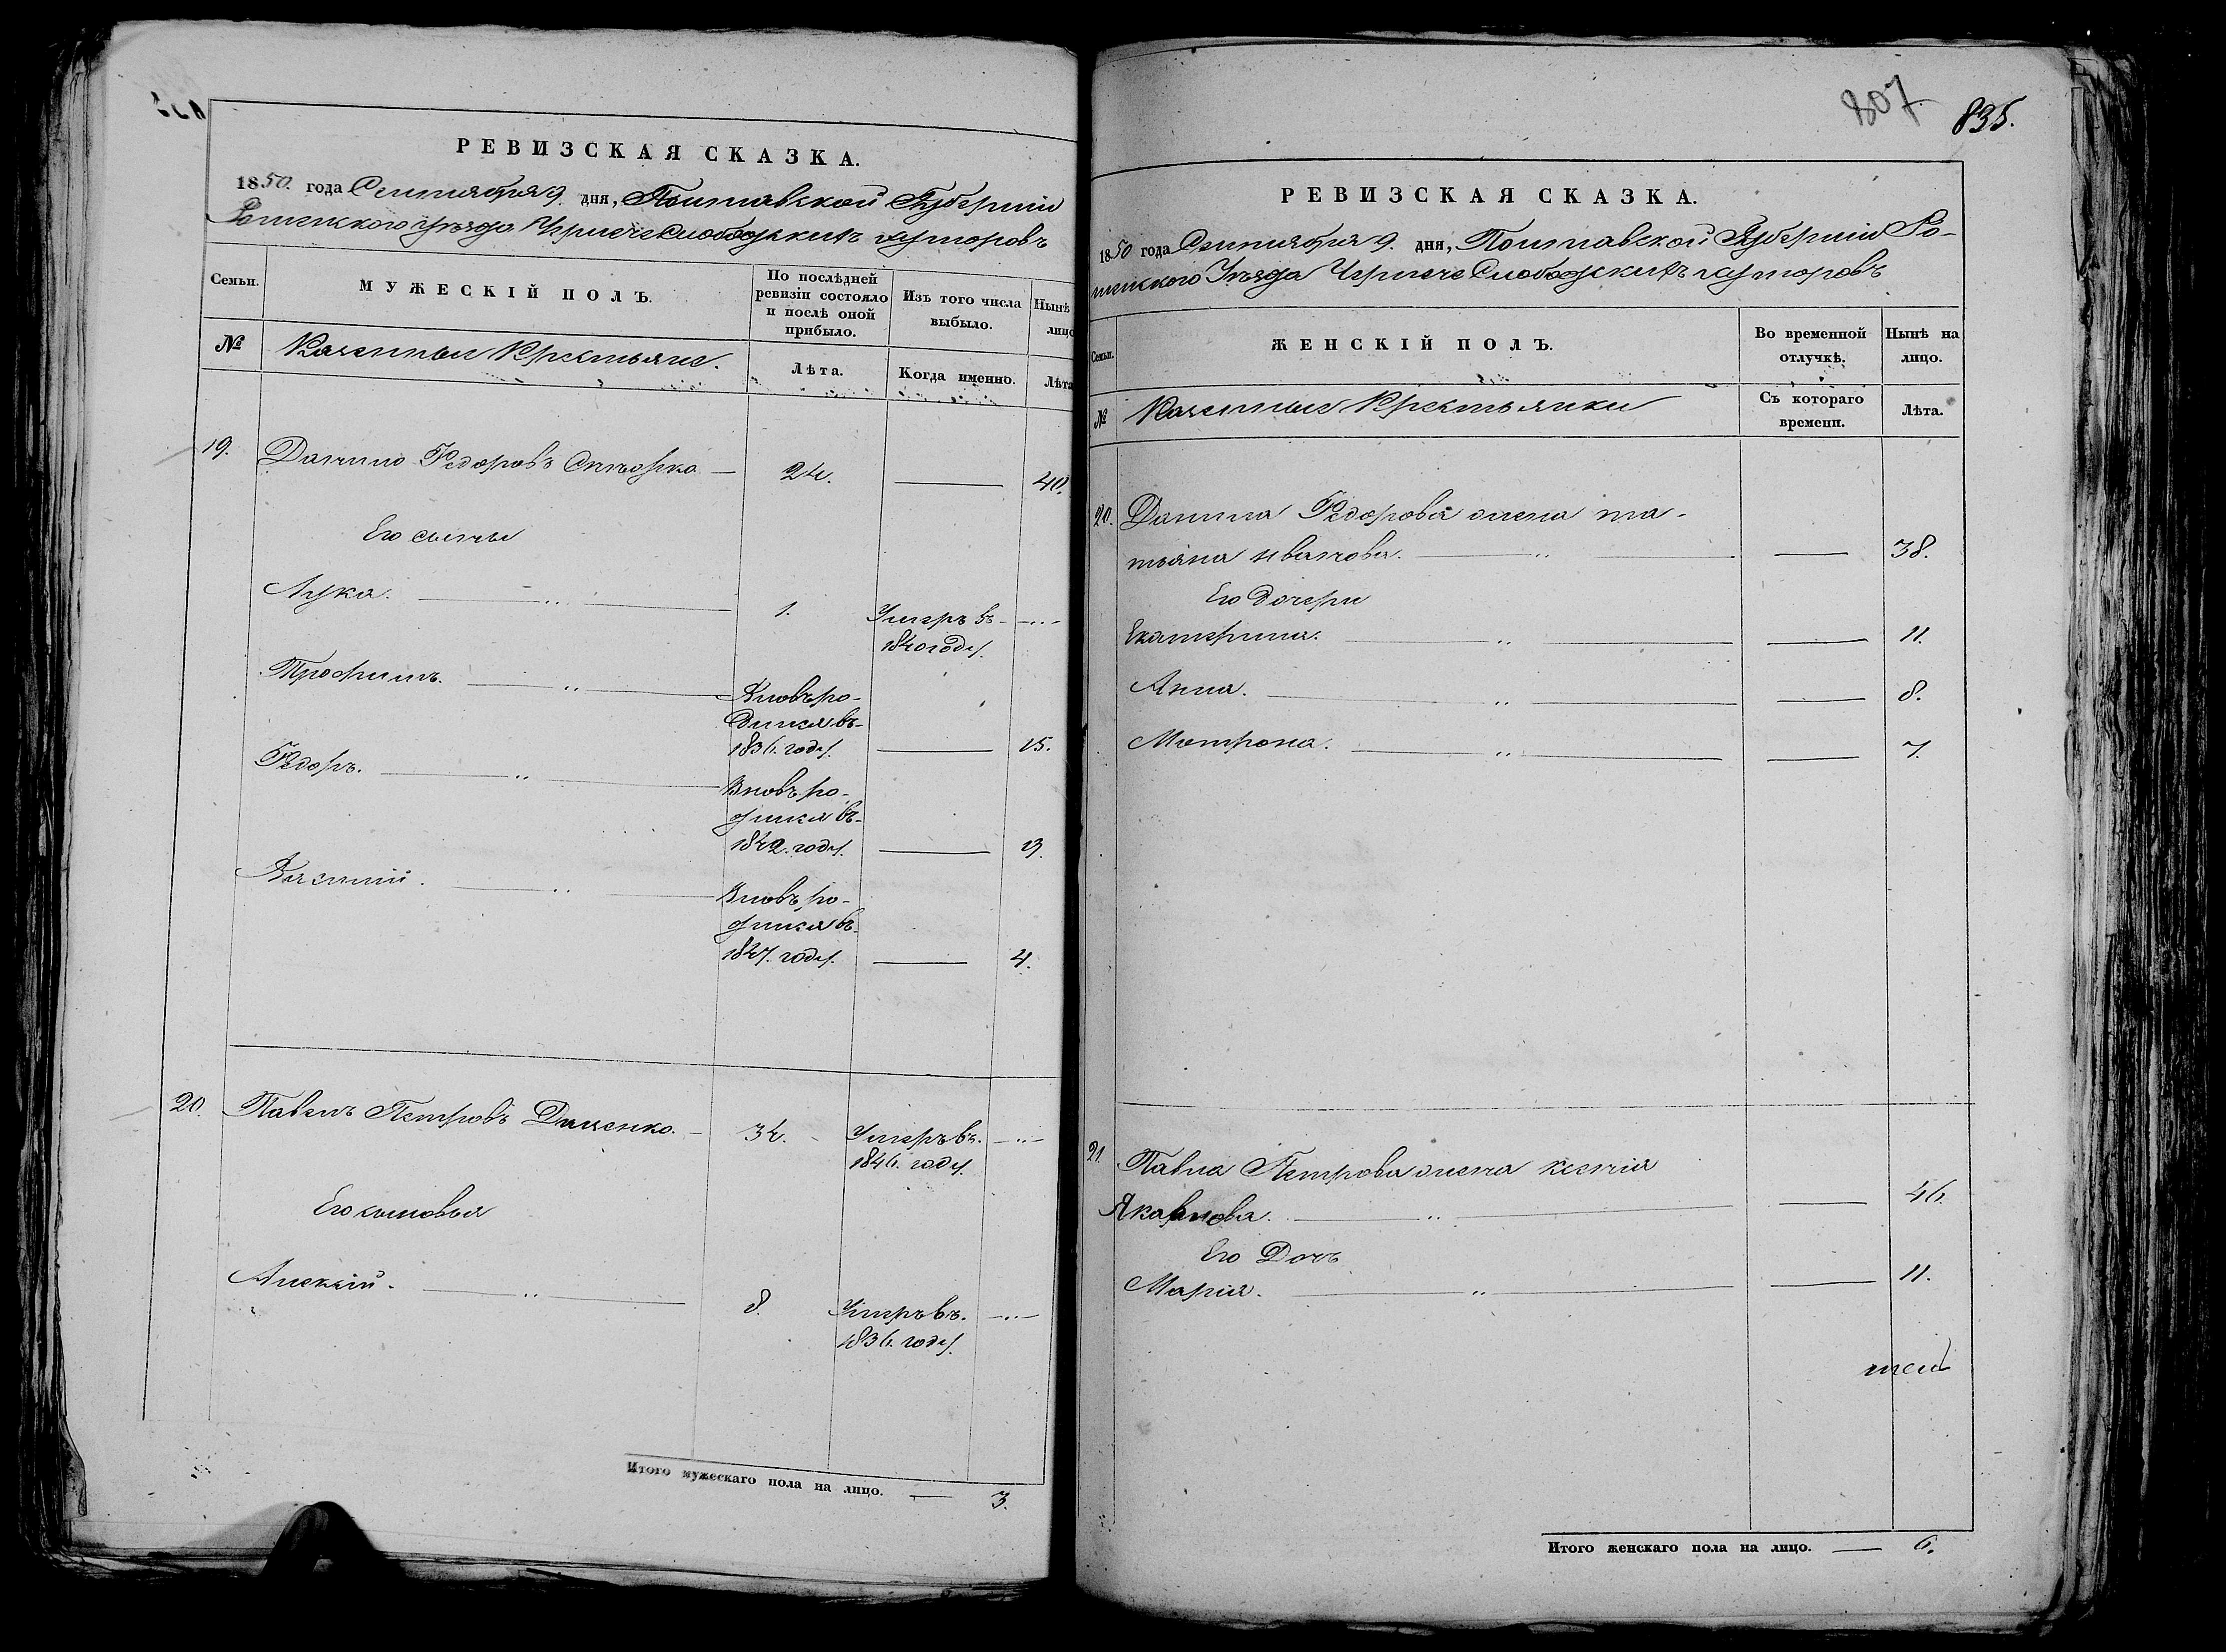 РЕВИЗСКАЯ СКАЗКА.
1850. года Сентября 9. дня, Полтавской Губернии
Роменского уезда Чернече Слободскихъ хуторовъ
Семьи.
МУЖЕСКІЙ ПОЛЪ.
По послѣдней
ревизіи состояло
и послѣ оной
прибыло.
Изъ того числа
выбыло.
Нынѣ
лицо
№
Казенные Крестьяне.
Лѣта.
Когда именно.
Лѣта
19. Данило Федоровъ 24. 40.
Его сыны
Лука. 1. Умеръ въ
1840 году.
Трофимъ. Вновь ро-
дился въ
1836. году. 15.
Федоръ. Вновь ро-
дился въ
1842. году. 9.
Василий. Вновь ро-
дился въ
1847. году. 4.
20. Павелъ Петровъ Дяченко. 34. Умеръ въ
1846. году.
Его сыновья
Алексѣй. 8. Умеръ въ
1836. году.
Итого мужескаго пола на лицо. 3.
807 835.
РЕВИЗСКАЯ СКАЗКА.
1850 года Сентября 9. дня, Полтавской Губернии Ро-
менского Уезда Чернече Слободскихъ хуторовъ
Семьи.
ЖЕНСКІЙ ПОЛЪ.
Во временной
отлучкѣ.
Нынѣ на
лицо.
№
Казенные Крестьянки
Съ котораго
времени.
Лѣта.
20. Данила Федорова жена та-
тьяна иванова. 38.
Его дочери
Екатерина. 11.
Анна. 8.
Мотрона. 7.
21. Павла Петрова жена ксения
Яковлева. 46.
Его Дочь
Мария. 11.
Итого женскаго пола на лицо. 6.